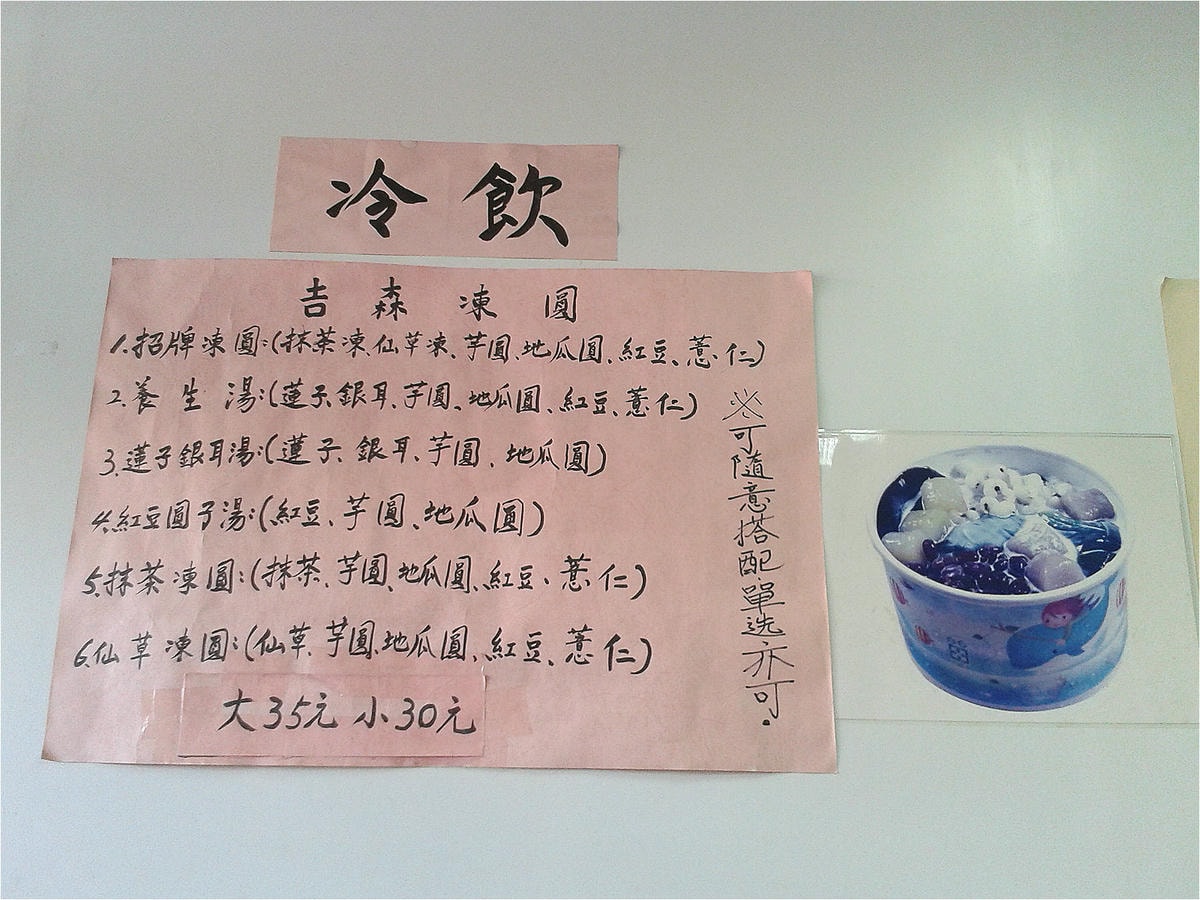 冷飲
吉森凍圓
1.招牌凍圓:(抹茶凍、仙草凍、芋圓、地瓜圓、紅豆、薏仁)
2.養生湯:(蓮子、銀耳、芋圓、地瓜圓、紅豆、薏仁)
3.蓮子銀耳湯:(蓮子、銀耳、芋圓、地瓜圓)
4.紅豆圓子湯:(紅豆、芋圓、地瓜圓)
5.抹茶凍圓:(抹茶、芋圓、地瓜圓、紅豆、薏仁)
6.仙草凍圓:(仙草、芋圓、地瓜圓、紅豆、薏仁)
大35元 小30元
※可隨意搭配單选亦可.